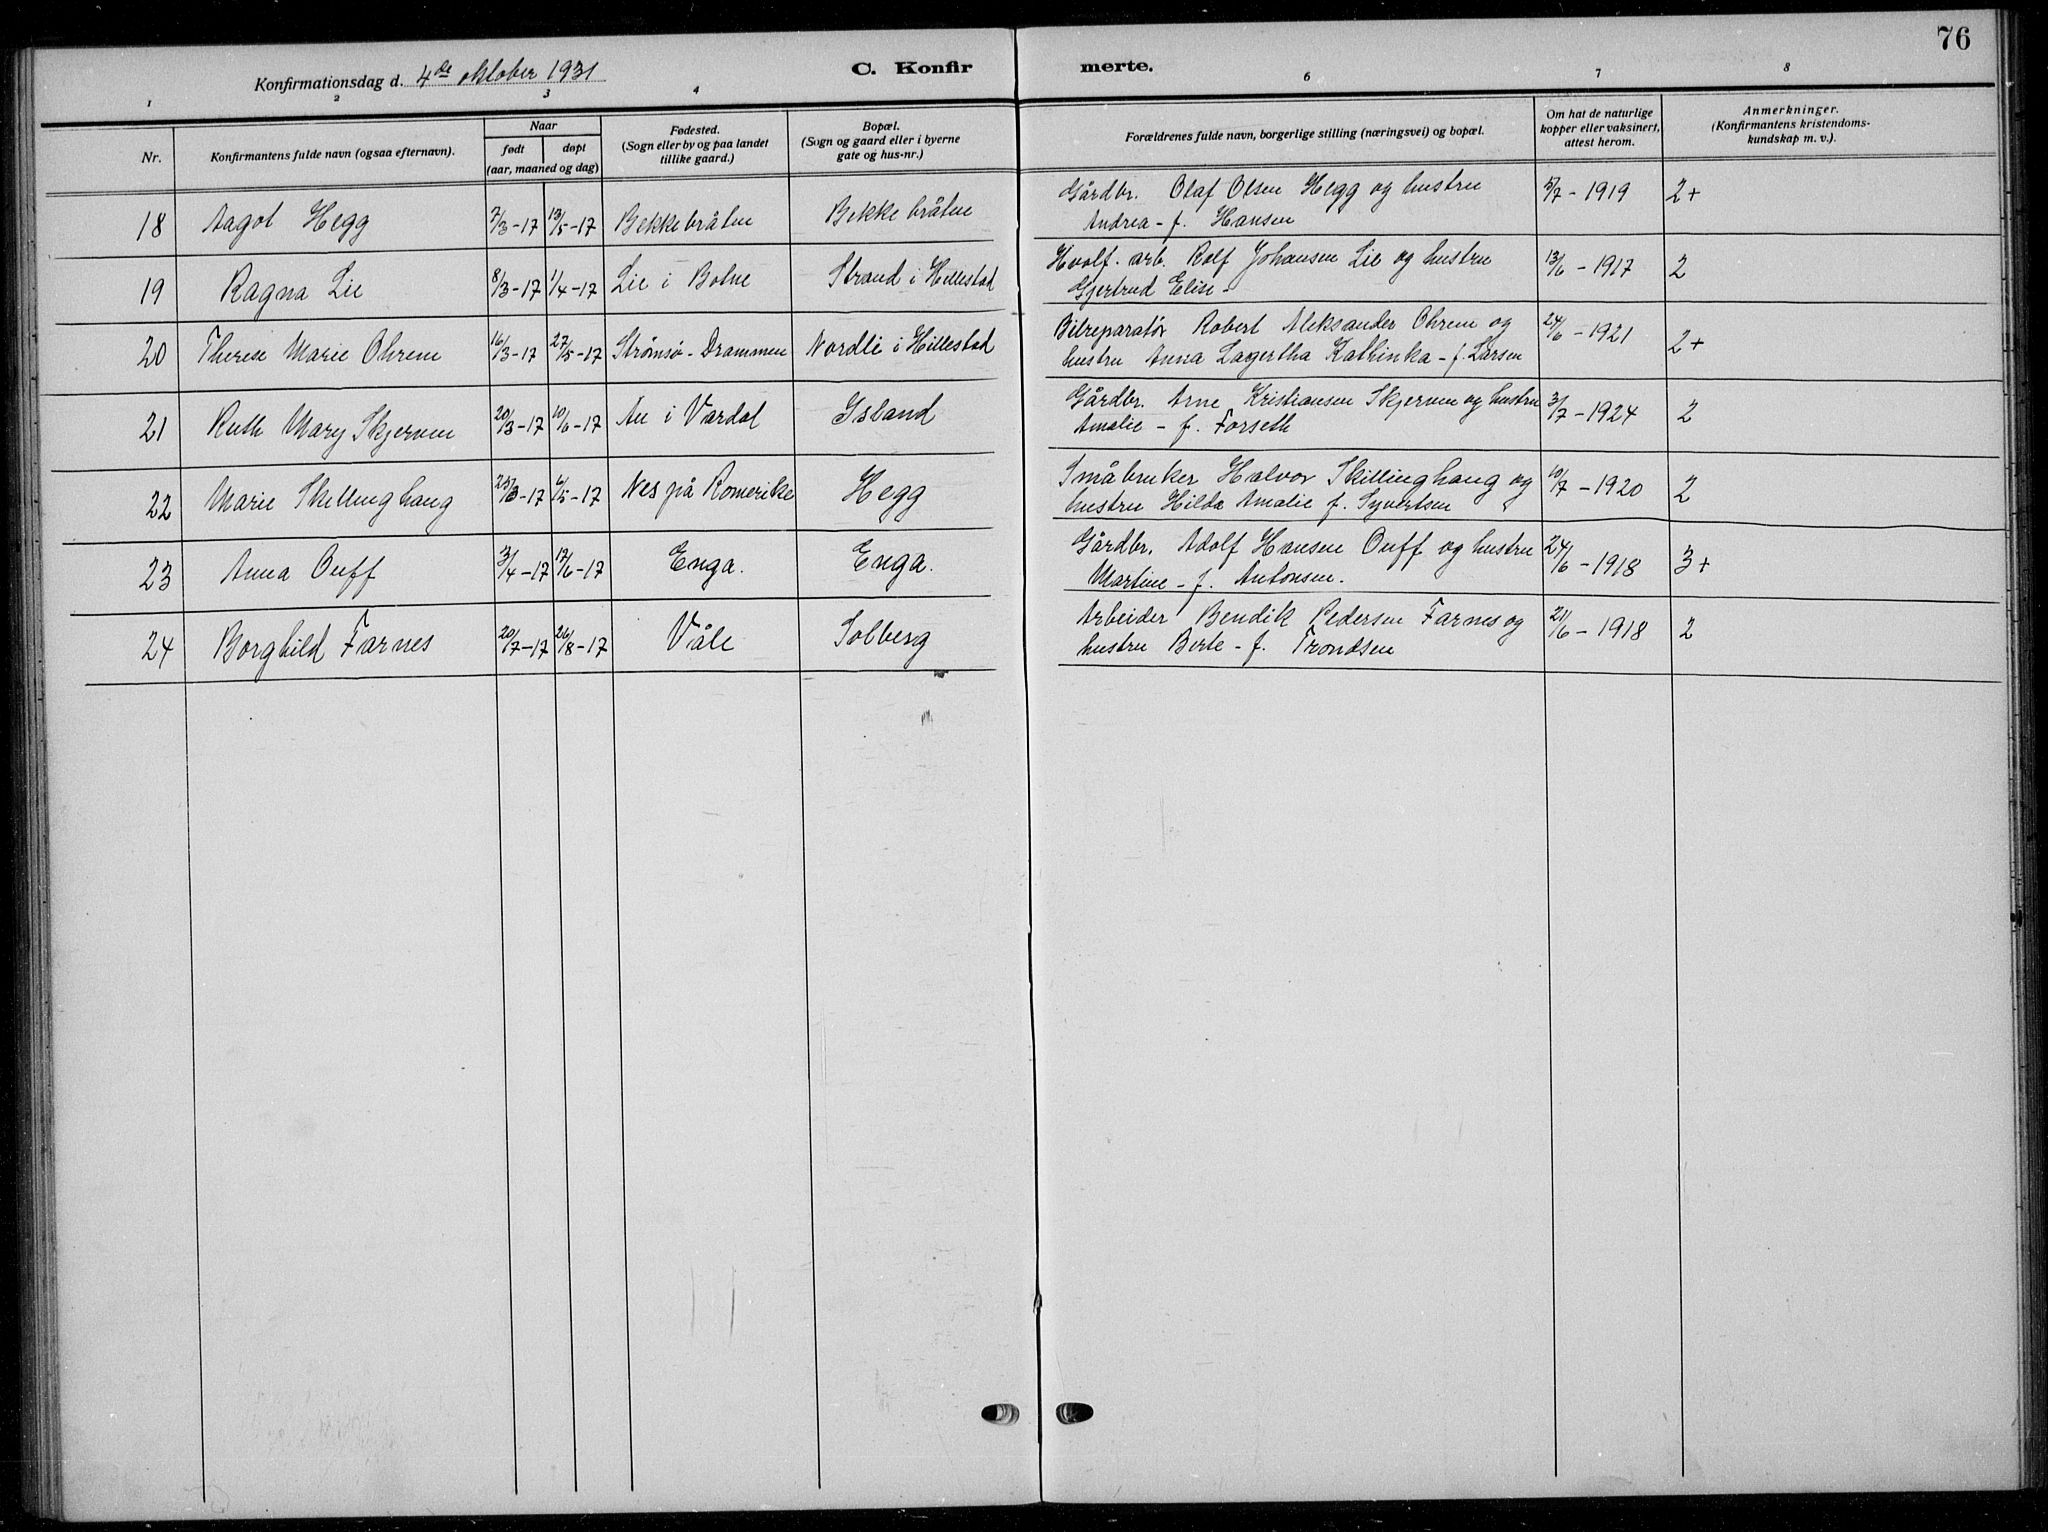 76
Konfirmationsdag d. 4de oktober 1931
C. Konfir
merte.
1 2 3 4 6 7 8
Nr.
Konfirmantens fulde navn (ogsaa efternavn).
Naar
født
døpt
(aar, maaned og dag)
Fødested.
(Sogn eller by og paa landet
tillike gaard.)
Bopæl.
(Sogn og gaard eller i byerne
gate og hus-nr.)
Forældrenes fulde navn, borgerlige stilling (næringsvei) og bopæl.
Om hat de naturlige
kopper eller vaksinert,
attest herom.
Anmerkninger.
(Konfirmantens kristendoms-
kundskap m. v.).
18 Aagot Hegg 7/3-17 13/5-17 Bekkebråten Bekkebråten Gårdbr. Olaf Olsen Hegg og hustru 5/7-1919 2+
Andrea - f. Hansen
19 Ragna Lie 8/3-17 1/4-17 Lie i Botne Strand i Hillestad Hvalf. arb. Rolf Johansen Lie og hustru 13/6-1917 2
Gjertrud Elise -
20 Therese Marie Ohrem 16/3-17 27/5-17 Strømsø-Drammen Nordli i Hillestad Bilreparatør Robert Aleksander Ohrem og 24/6-1921 2+
hustru Anna Lagertha Kathinka - f. Larsen
21 Ruth Mary Skjerven 20/3-17 10/6-17 Au i Vardal Island Gårdbr. Arne Kristiansen Skjerven og hustru 3/7-1924 2
Amalie - f. Forseth
22 Marie Skillinghaug 23/3-17 6/5-17 Nes på Romerike Hegg Småbruker Halvor Skillinghaug og 10/7-1920 2
hustru Hilda Amalie f. Syvertsen
23 Anna Ouff 3/4-17 17/6-17 Enga. Enga. Gårdbr. Adolf Hansen Ouff og hustru 24/6-1918 3+
Martine - f. Antonsen.
24 Borghild Farnes 20/7-17 26/8-17 Våle Solberg Arbeider Bendik Pedersen Farnes og 21/6-1918 2
hustru Berte - f. Trondsen